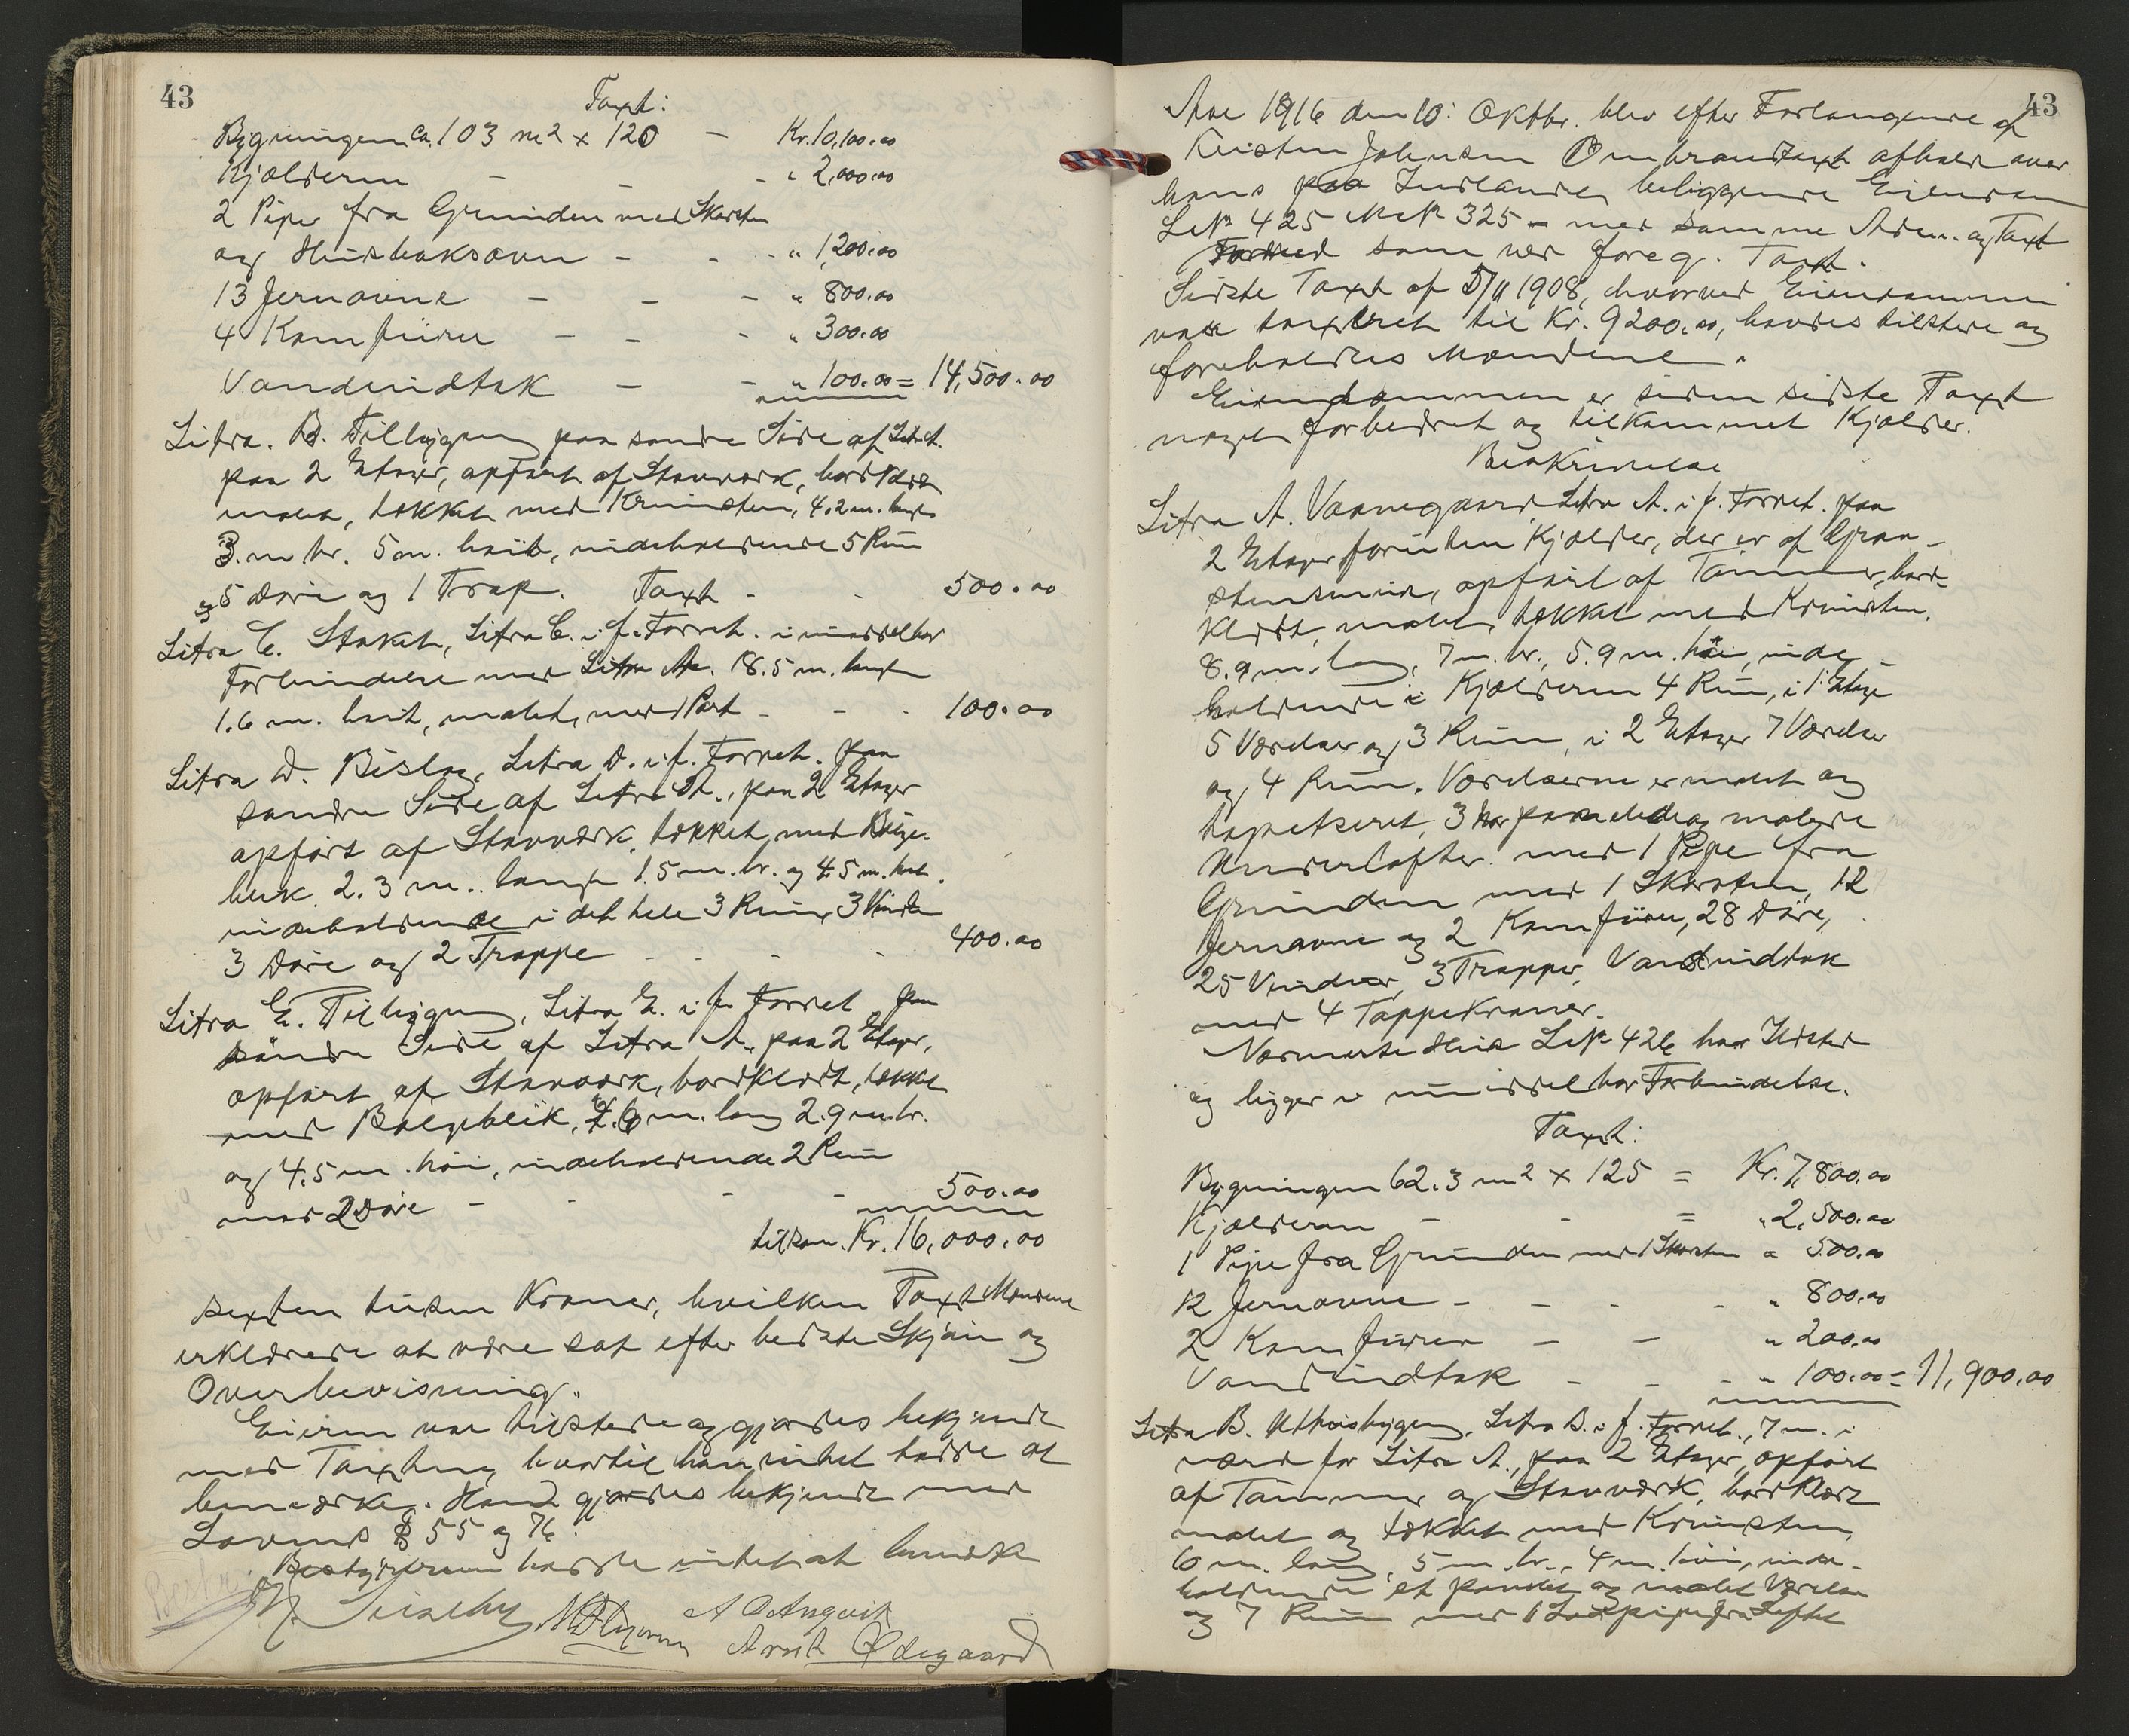 43
Taxt:
Bygningen ca. 103 m2 x 120 — Kr. 10,100.00
Kjælderen — - - " 2,000.00
2 Piper fra Grunden med Skorsten
og Husbaksovn - - - " 1,200.00
13 Jernovne - - - " 800.00
4 Komfürer - - - " 300.00
Vandindtak — - " 100.00 = 14,500.00
Litra. B. Tilbygn paa søndre Side af Lit. A.
paa 2 Etager, opført af Stavværk, bordklæd
malet, tækket med Krumsten, 4.2 m. lang
3. m br. 5 m. høit, indeholdende 5 Rum
og 5 Døre og 1 Trap. Taxt - - 500.00
Litra C. Staket, Litra C. i f. Forret. i umiddelbar
Forbindelse med Litra A. 18.5 m. langt
1.6 m. høit, malet, med Port - - - 100.00
Litra D. Bislag, Litra D. i f. Forret. paa
søndre Side af Litra A., paa 2 Etager
opført af Stavværk, tækket med Bølge-
blik. 2.3 m. langt 1.5 m. br. og 4.5 m. høit.
indeholdende i det hele 3 Rum, 3 Vinduer
3 Døre og 2 Trappe - - - - 400.00
Litra E. Tilbygn, Litra E. i f. Forret paa
søndre Side af Litra A. paa 2 Etager,
opført af Stavværk, bordklædt, tækket
med Bølgeblik, m. lang 2.9 m. br.
og 4.5 m. høi, indeholdende 2 Rum
med 2 Døre - - - - 500.00
tilsam. Kr. 16,000.00
sexten tusen Kroner, hvilken Taxt Mændene
erklærede at være sat efter bedste Skjøn og
Overbevisning.
Eieren var tilstede og gjordes bekjendt
med Taxten, hvortil han intet havde at
bemærke. Han gjordes bekjendt med
Lovens § 55 og 76.
Bestyreren havde intet at bemærke
A Ångvik
Arnt Ødegaard
43
Aar 1916 den 10: Oktbr. blev efter Forlangende af
Kristen Johnsen Ombrandtaxt afholdt over
hans paa Indlandet beliggende Eiendom
LNr 425 MNr 325 - med samme Adm. og Taxt
som ved foreg. Taxt.
Sidste Taxt af 5/11 1908, hvorved Eiendommen
var taxeret til Kr. 9200.00, havdes tilstede og
foreholdtes Mændene.
Eiendommen er siden sidste Taxt
noget forbedret og tilkommet Kjælder.
Beskrivelse
Litra A. Vaanegaard, Litra A. i f. Forret. paa
2 Etager foruten Kjælder, der er af Graa-
stensmur, opført af Tømmer, bord-
klædt, malet, tækket med Krumsten.
8.9 m. lang, 7 m. br., 5.9 m. høi, inde-
holdende i Kjælderen 4 Rum, i 1' Etage
5 Værelser og 3 Rum, i 2 Etager 7 Værelser
og 4 Rum. Værelserne er malet og
tapetseret, 3 har panelede og malede
Underlofter. med 1 Pipe fra
Grunden med 1 Skorsten, 12
Jernovne og 2 Komfürer, 28 Døre,
25 Vinduer, 3 Trapper, Vandindtak
med 4 Tappekraner.
Nærmeste Hus LNr 426 har Ildsted
og ligger i umiddelbar Forbindelse.
Taxt:
Bygningen 62.3 m2 x 125 = Kr. 7,800.00
Kjælderen - - = " 2,500.00
1 Pipe fra Grunden med 1 Skorsten " 500.00
12 Jernovne - - - - " 800.00
2 Komfürer — — " 200.00
Vandindtak - - - " 100.00 = 11,900.00
Litra B. Uthusbygn, Litra B. i f. Forret., 7 m. i
nord for Litra A., paa 2 Etager, opført
af Tømmer og Stavværk, bordklædt
malet og tækket med Krumsten,
6 m. lang, 5 m. br., 4 m. høi, inde-
holdende et panelet og malet Værelse
og 7 Rum med 1 fra Loftet